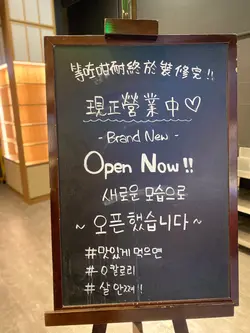 等咗咁耐終於裝修完!!
現正營業中♡
- Brand New -
Open Now!!
새로운 모습으로
~ 오픈했습니다 ~
#맛있게 먹으면
#0칼로리
#살안쪄!!